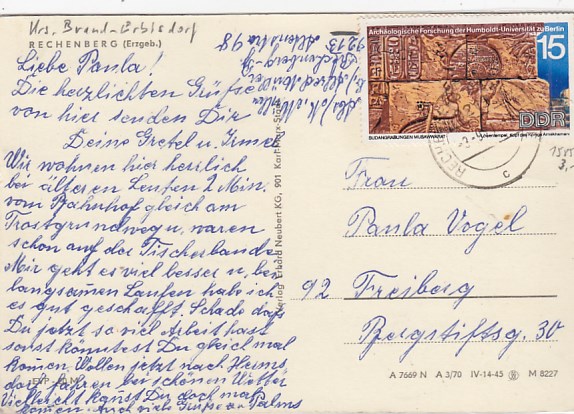 Krs. Brand-Erbisdorf
RECHENBERG (Erzgeb.)
Liebe Paula!
Die herzlichsten Grüße
von hier senden Dir
Deine Gretel u. Irma
Wir wohnen hier herrlich
bei älteren Leuten 2 Min.
vom Bahnhof gleich am
Trostgrundweg u. waren
schon auf der Fischerbaude
Mir geht es viel besser u. bei
langsamen Laufen hab ich
es gut geschafft. Schade daß
Du jetzt so viel Arbeit hast
sonst könntest Du gleich mal
kommen. Wollen jetzt nach Herms
dorf fahren bei schönen Wetter
Vielleicht kannst Du doch mal
kommen. Auch viele Grüße a. Palms
9213
Rechenberg-B.
Alte Str. 98
Verlag Erhard Neubert KG, 901 Karl-Marx-Stadt
Archäologische Forschung der Humboldt-Universität zu Berlin
15
DDR
SUDANGRABUNGEN MUSAWWARAT
c
15
3,-
Frau
Paula Vogel
92 Freiberg
Bergstiftsg. 30
A 7669 N A 3/70 IV-14-45 M 8227